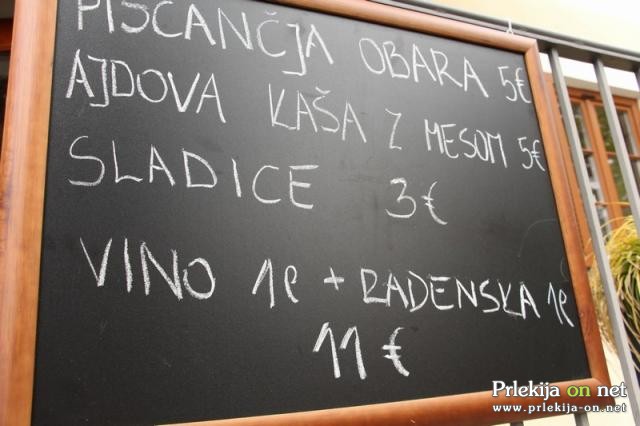 PIŠČANČJA OBARA 5€
AJDOVA KAŠA Z MESOM 5€
SLADICE 3€
VINO 1l + RADENSKA 1l
11€
Prlekija on net
www.prlekija-on.net